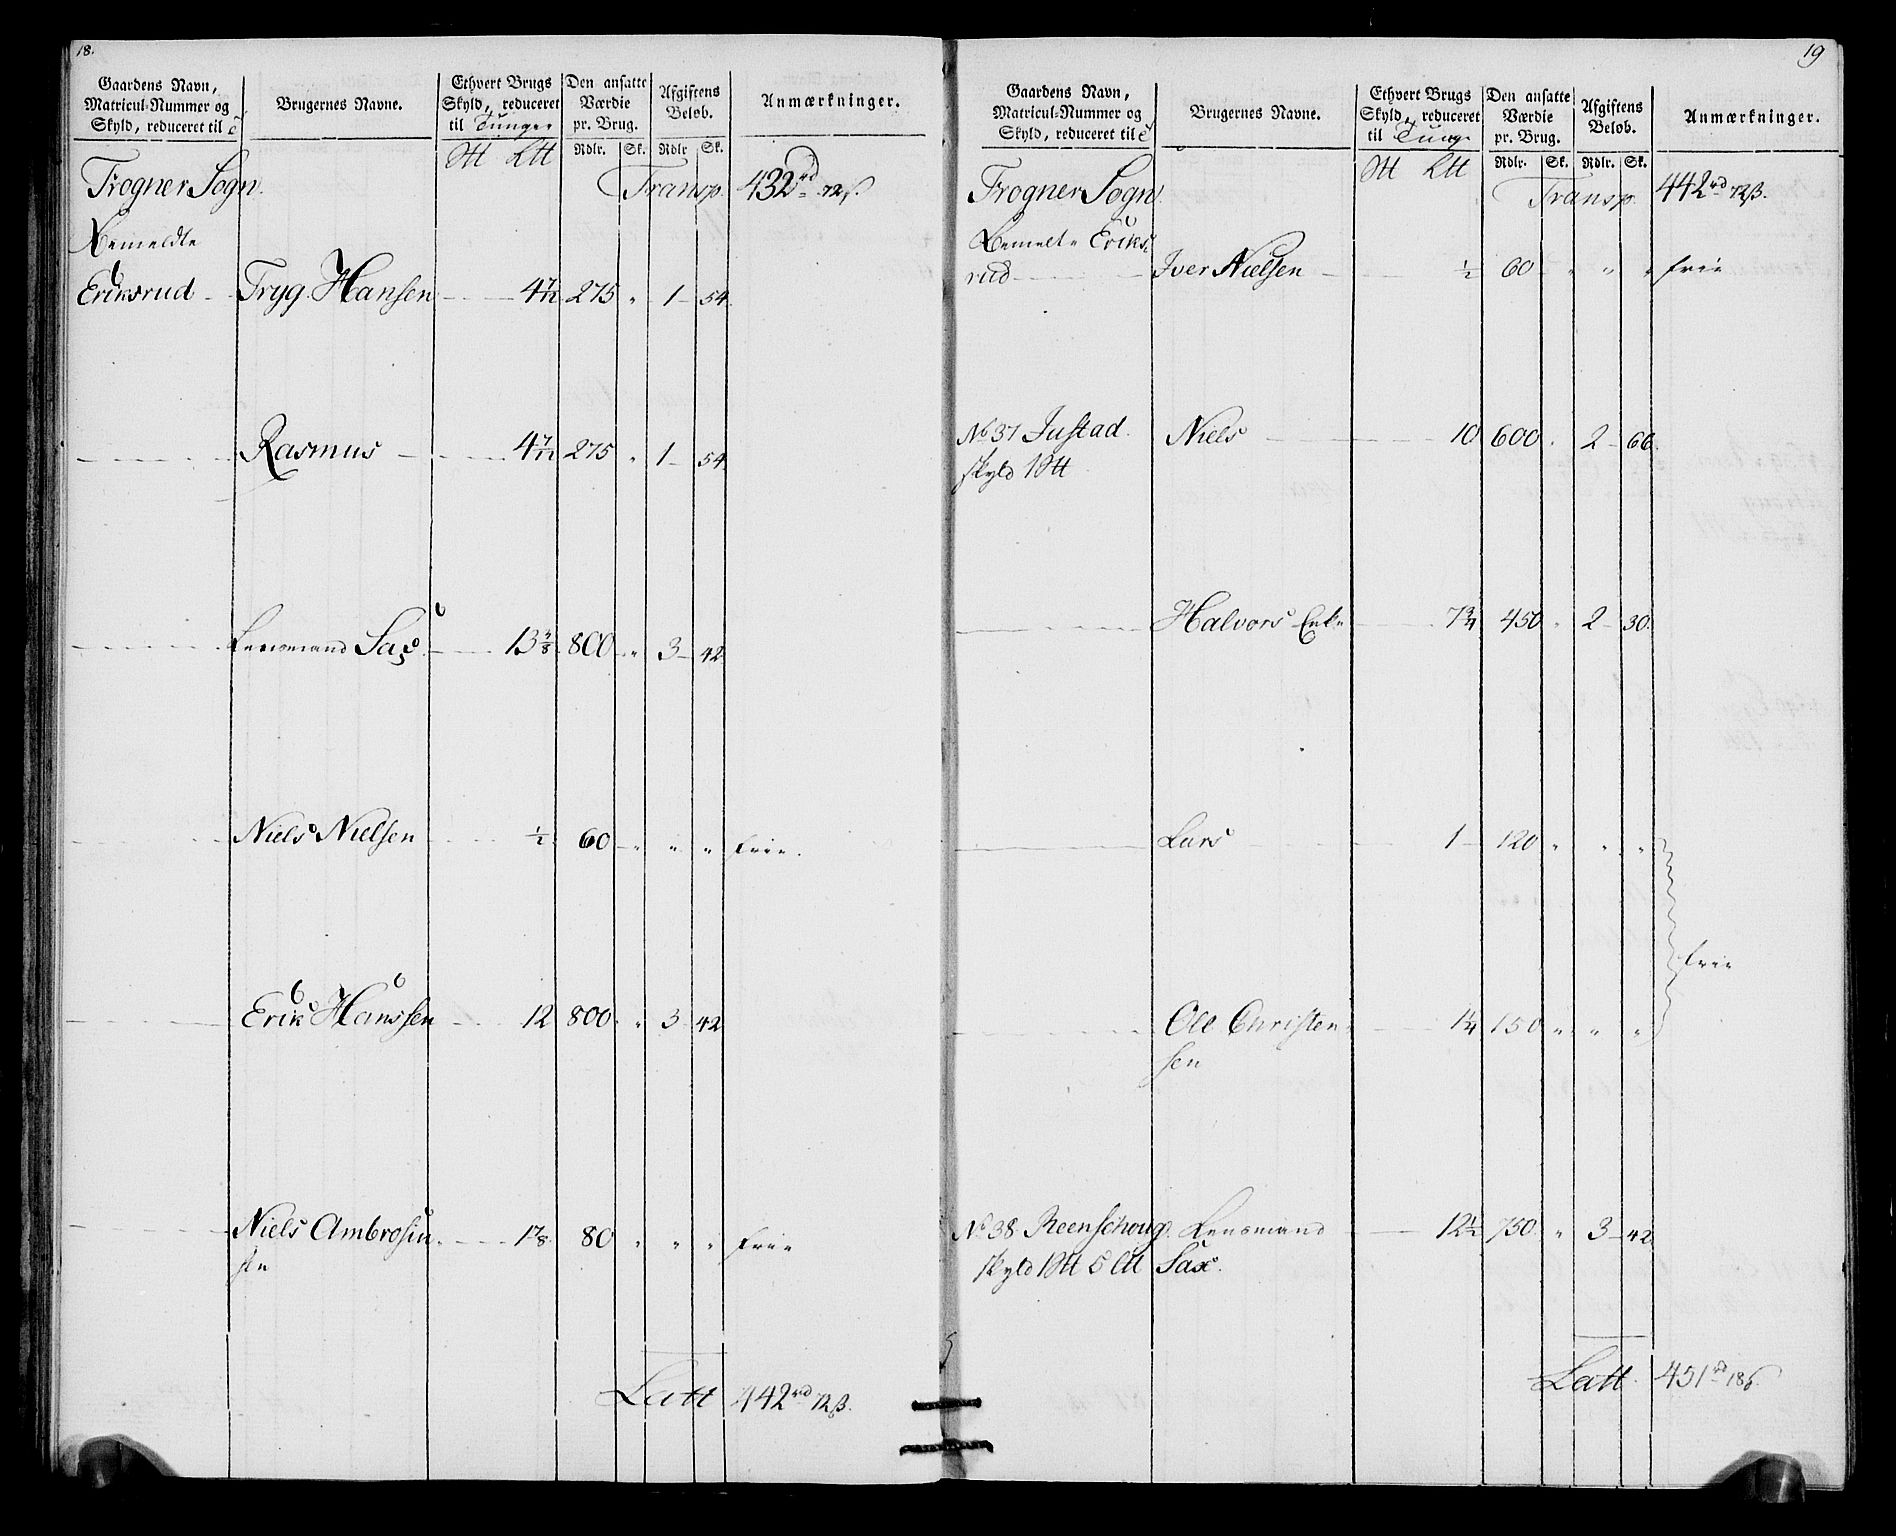 18.
Gaardens Navn,
Matricul-Nummer og
Skyld, reduceret til
Brugernes Navne.
Ethvert Brugs
Skyld, reduceret
til Tunge
Den ansatte
Værdie
pr. Brug.
Rdlr. Sk.
Afgiftens
Beløb.
Rdlr Sk.
Anmærkninger.
Frogner Sogn. Transp. 432 rd 72 ß.
Bemeldte
Eriksrud Tryg Hansen 4 7/12 275 " 1 54
Rasmus 4 7/12 275 " 1 54
Lensmand Sax 13 3/8 800 " 3 42
Niels Nielsen 1/2 60 " " " frie.
Erik Hanssen 12 800 " 3 42
Niels Ambrosiu 1 7/8 80 " " " frie
sen
Latt 442 rd 72 ß.
19
Gaardens Navn,
Matricul-Nummer og
Skyld, reduceret til
Brugernes Navne.
Ethvert Brugs
Skyld, reduceret
til Tunge
Den ansatte
Værdie
pr. Brug.
Rdlr. Sk.
Afgiftens
Beløb.
Rdlr. Sk.
Anmærkninger.
Frogner Sogn. Transp. 442 rd 72 ß.
Bemelte Eriks
rud Iver Nielsen 1/2 60 " " " frie
No 37 Justad. Niels 10 600 " 2 66.
skyld 1
Halvors Enke 7 3/4 450 " 2 30.
Lars 1 120 " " "
frie
Ole Christen 1 1/4 150 " " "
sen
No 38 Reenschoug. Lensmand 12 1/2 750 " 3 42
skyld 1 5 Sax.
Latt. 451 rd 18 ß.